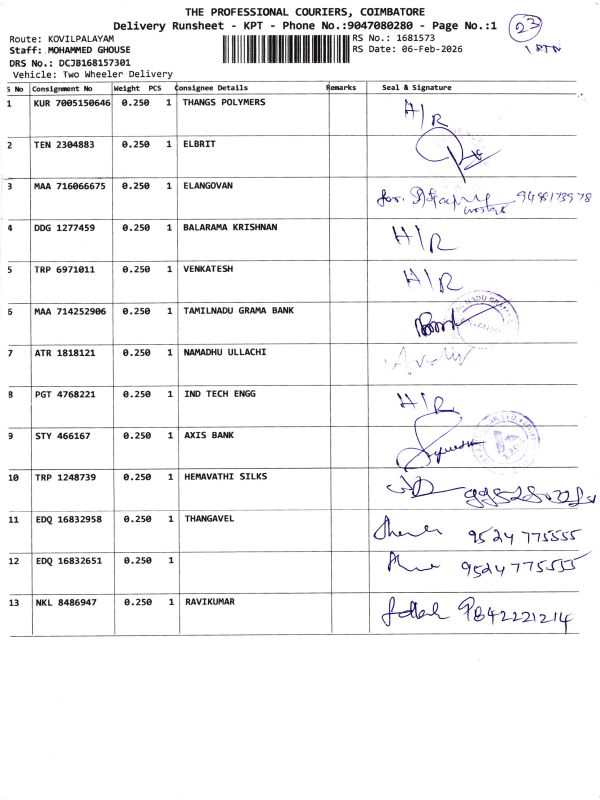 THE PROFESSIONAL COURIERS, COIMBATORE
Delivery Runsheet - KPT - Phone No.:9047080280 - Page No.:1
23
1 RTN
Route: KOVILPALAYAM
RS No.: 1681573
Staff: MOHAMMED GHOUSE
RS Date: 06-Feb-2026
DRS No.: DCJB168157301
Vehicle: Two Wheeler Delivery
S No Consignment No Weight PCS Consignee Details Remarks Seal & Signature
1 KUR 7005150646 0.250 1 THANGS POLYMERS H/R
2 TEN 2304883 0.250 1 ELBRIT
3 MAA 716066675 0.250 1 ELANGOVAN for. 9488173978
4 DDG 1277459 0.250 1 BALARAMA KRISHNAN H/R
5 TRP 6971011 0.250 1 VENKATESH H/R
6 MAA 714252906 0.250 1 TAMILNADU GRAMA BANK
7 ATR 1818121 0.250 1 NAMADHU ULLACHI
8 PGT 4768221 0.250 1 IND TECH ENGG H/R
9 STY 466167 0.250 1 AXIS BANK
10 TRP 1248739 0.250 1 HEMAVATHI SILKS
11 EDQ 16832958 0.250 1 THANGAVEL 9524 775555
12 EDQ 16832651 0.250 1 9524 775555
13 NKL 8486947 0.250 1 RAVIKUMAR 9842221214